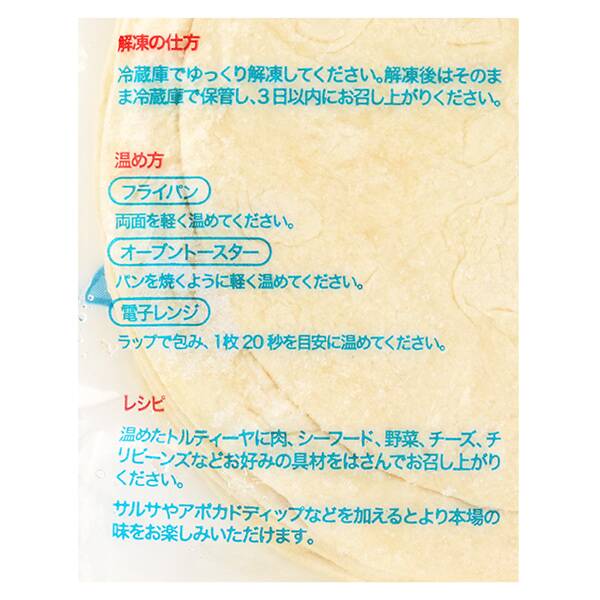 解凍の仕方
冷蔵庫でゆっくり解凍してください。解凍後はそのま
ま冷蔵庫で保管し、3日以内にお召し上がりください。
温め方
フライパン
両面を軽く温めてください。
オーブントースター
パンを焼くように軽く温めてください。
電子レンジ
ラップで包み、1枚20秒を目安に温めてください。
レシピ
温めたトルティーヤに肉、シーフード、野菜、チーズ、チ
リビーンズなどお好みの具材をはさんでお召し上がり
ください。
サルサやアボカドディップなどを加えるとより本場の
味をお楽しみいただけます。